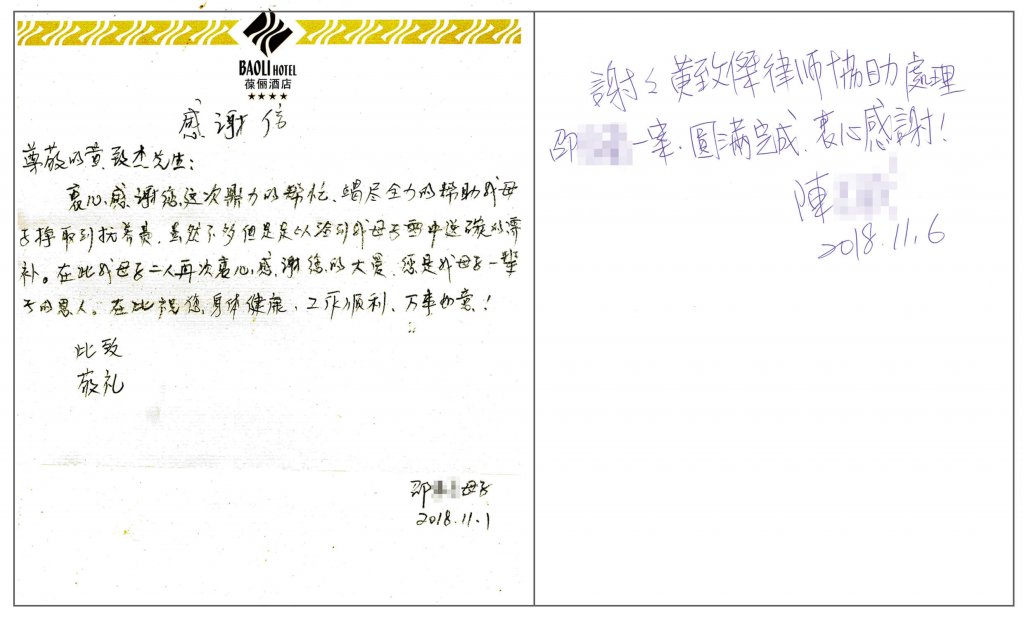 BAOLI HOTEL
葆俪酒店
★★★★
感谢信
尊敬的黄致杰先生:
衷心感谢您这次鼎力的帮忙、竭尽全力的帮助我母
子择取到抚养费,虽然不多但是足以给到我母子雪中送碳的滞
补。在此我母子二人再次衷心感谢您的大爱,您是我母子一辈
子的恩人。在此祝您身体健康、工作顺利、万事如意!
此致
敬礼
邵 母子
2018.11.1
謝々黃致傑律师協助處理
邵 一案,圓滿完成、衷心感謝!
陳
2018.11.6